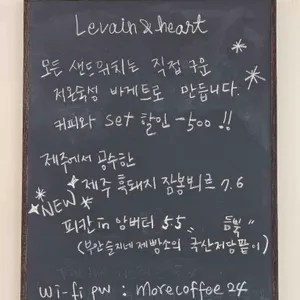 Levain & heart
모든 샌드위치는 직접 구운
저온숙성 바게트로 만듭니다.
커피와 set 할인 -500 !!
제주에서 공수한
제주 흑돼지 잠봉뵈르 7.6
NEW
피칸 in 앙버터 5.5 듬뿍"
(부안슬지네제빵소의 국산저당팥이)
wi-fi pw : morecoffee 24